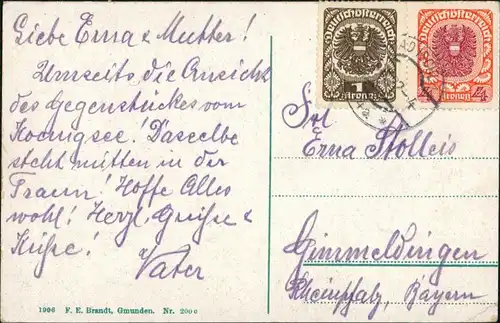 Liebe Erna & Mutter!
Umseits die Ansicht
des Gegenstückes vom
Koenigsee! Dasselbe
steht mitten in der
Traun! Hoffe Alles
wohl! Herzl. Grüße &
Küße!
Vater
1906 F. E. Brandt, Gmunden. Nr. 200
Deutschösterreich
1
Kronen
Deutschösterreich
4 4
Kronen
Frl
Erna Stolleis
Gimmeldingen
Rheinpfalz, Bayern